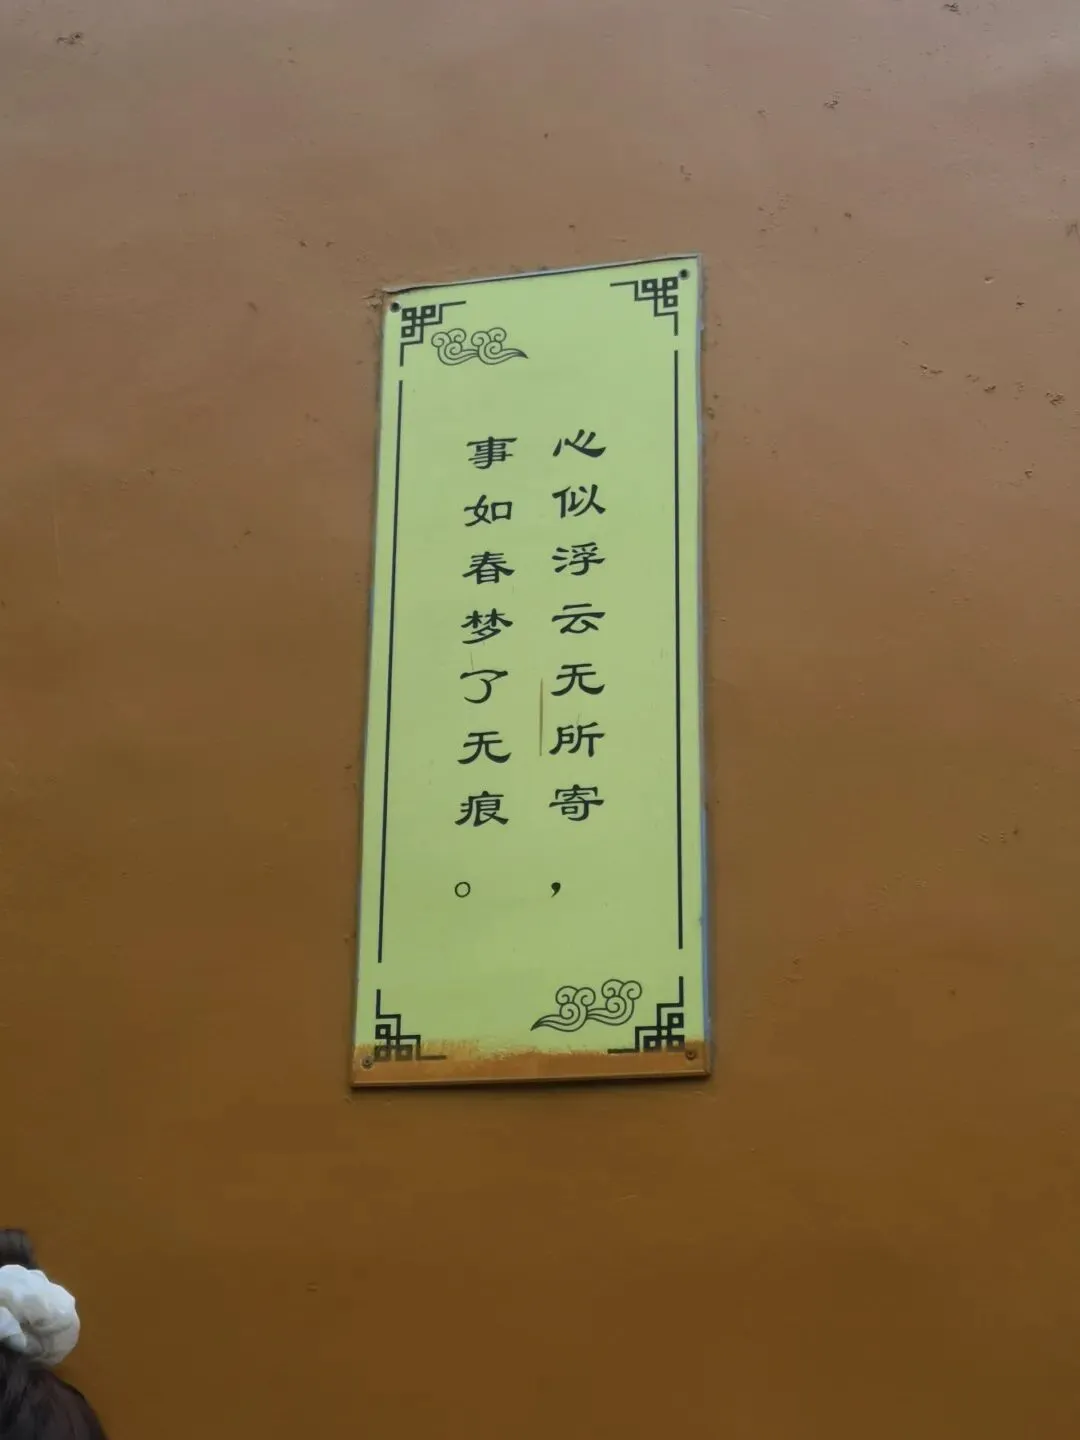 心似浮云无所寄，
事如春梦了无痕。